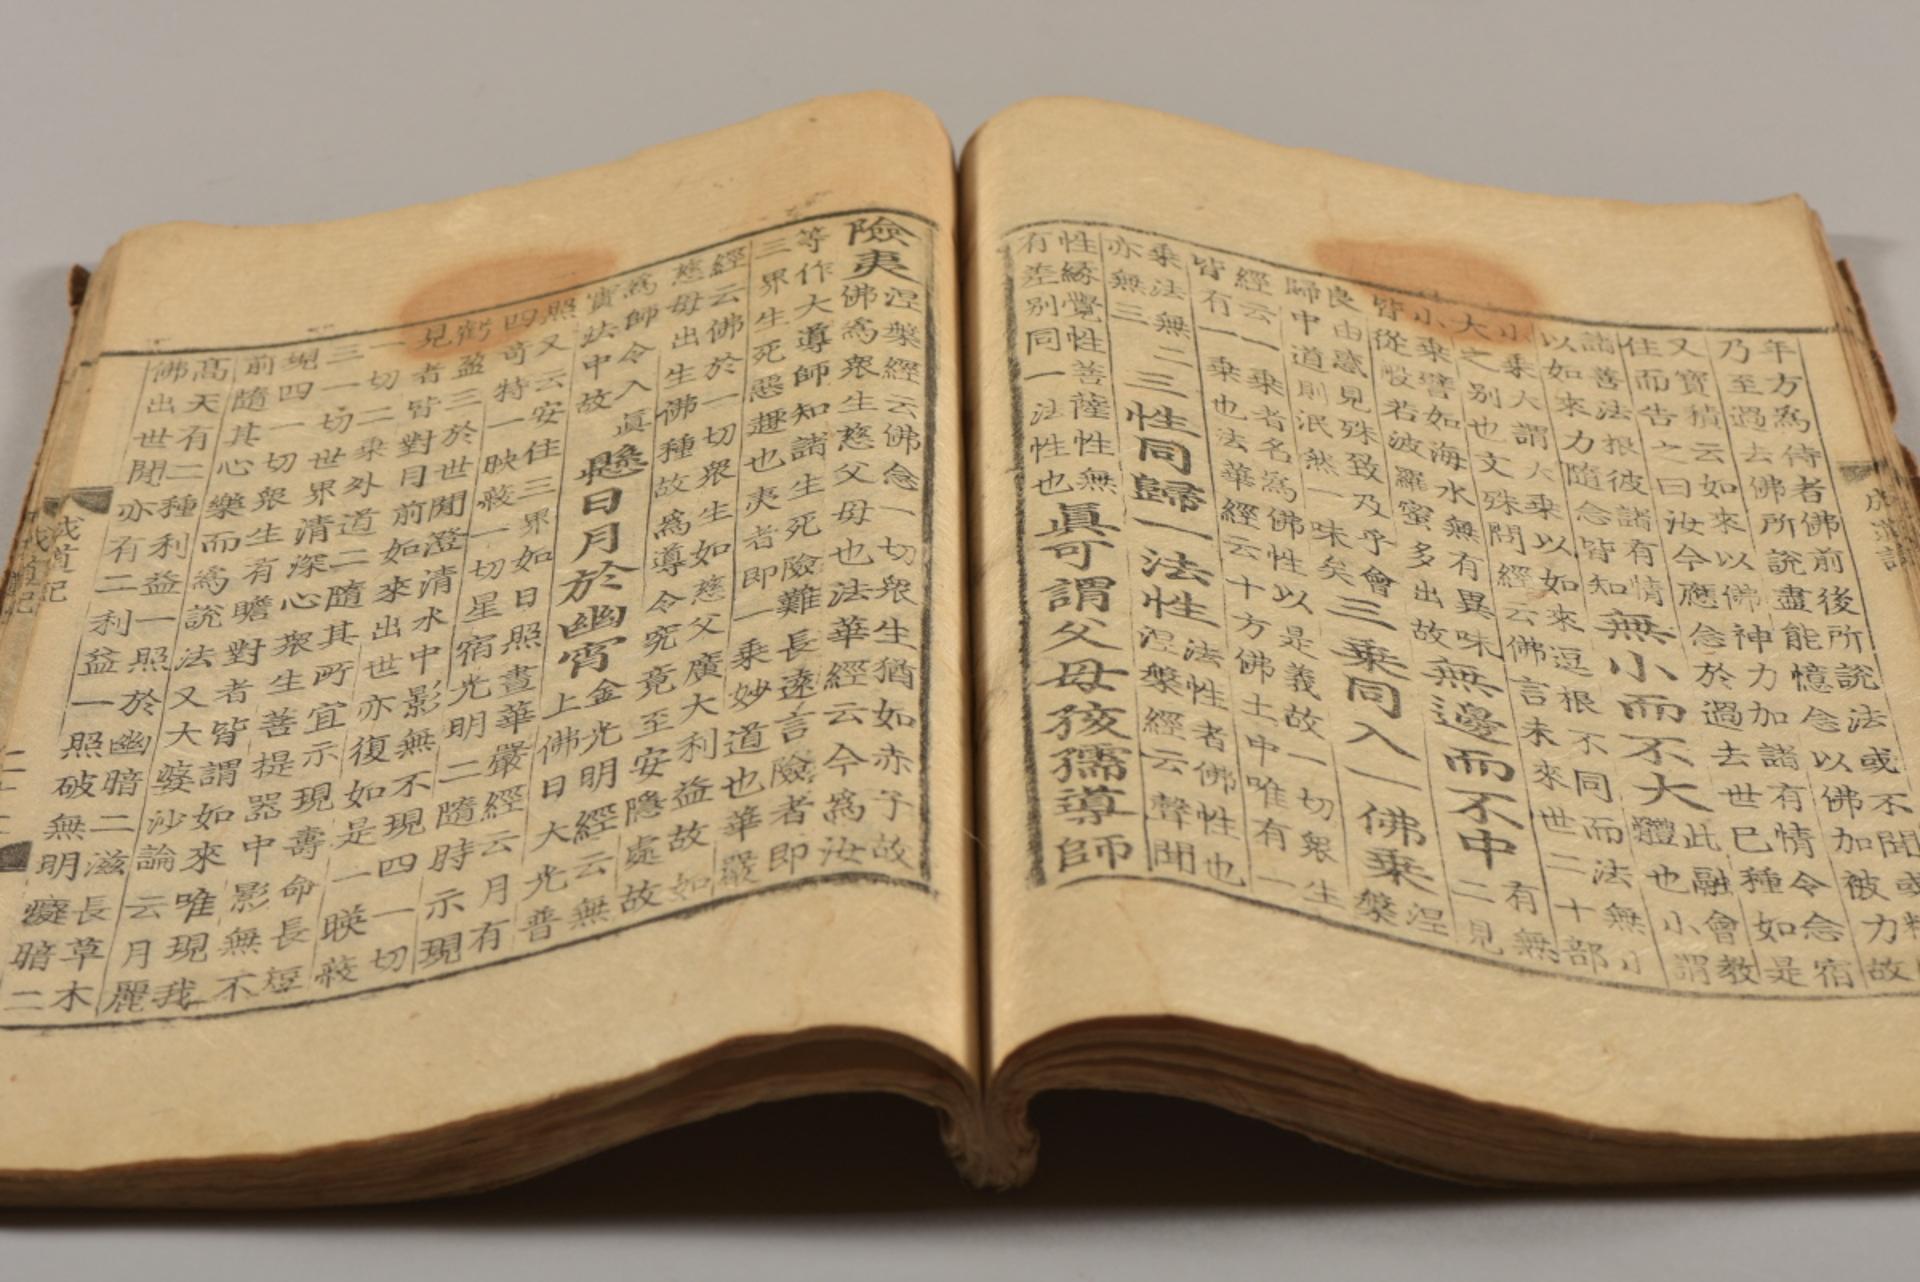 年方為侍者佛前後所說法或不聞或
乃至過去佛所說盡能憶念以佛加被力故
又寶積云如來以佛神力加諸有情令念宿
住而告之曰汝今應念於過去世已種如是
諸善法根彼諸有情
以如來力隨念皆知
無小而不大
此融會教
體也小謂
小乘大謂大乘以如來逗根不同而法無小
大之別也文殊問經云佛言未來世二十部
小乘譬如海水無有異味
皆從般若波羅蜜多出故
無邊而不中
有無
二見
良由惑見殊致及乎會
歸中道則泯然一味矣
三乘同入一佛乘
涅
槃
經云一乘者名為佛性以是義故一切衆生
皆有一乘也法華經云十方佛土中唯有一
乘法無二
亦無三
三性同歸一法性
法性者佛性也
涅槃經云聲聞
性緣覺性菩薩性無
有差別同一法性也
真可謂父母孩孺導師
險夷
涅槃經云佛念一切衆生猶如赤子故
佛為衆生慈父母也法華經云今為汝
等作大導師知諸生死險難長遠言險者即
三界生死惡趣也夷者即一乘妙道也華嚴
經云佛於一切衆生如慈父廣大利益故如
慈母出生佛種故為導令究竟至安隱處故
為師令入真
實法中故
懸日月於幽宵
金光明經云無
上佛日大光普
照又云安住三界如日照晝華嚴經云月有
四奇特一映蔽一切星宿光明二隨時示現
虧盈三於世間澄清水中影無不現四一切
見者皆對月前如來出世亦復如是一暎蔽
一切二乘外道二隨其所宜示現壽命長短
三一切世界清深心衆生菩提器中影無不
現四一切衆生有瞻對者皆謂如來唯現我
前隨其心樂而為說法又大婆沙論云月麗
高天有二種利益一照於幽暗二滋長草木
佛出世間亦有二利益一照破無明癡暗二
成道記